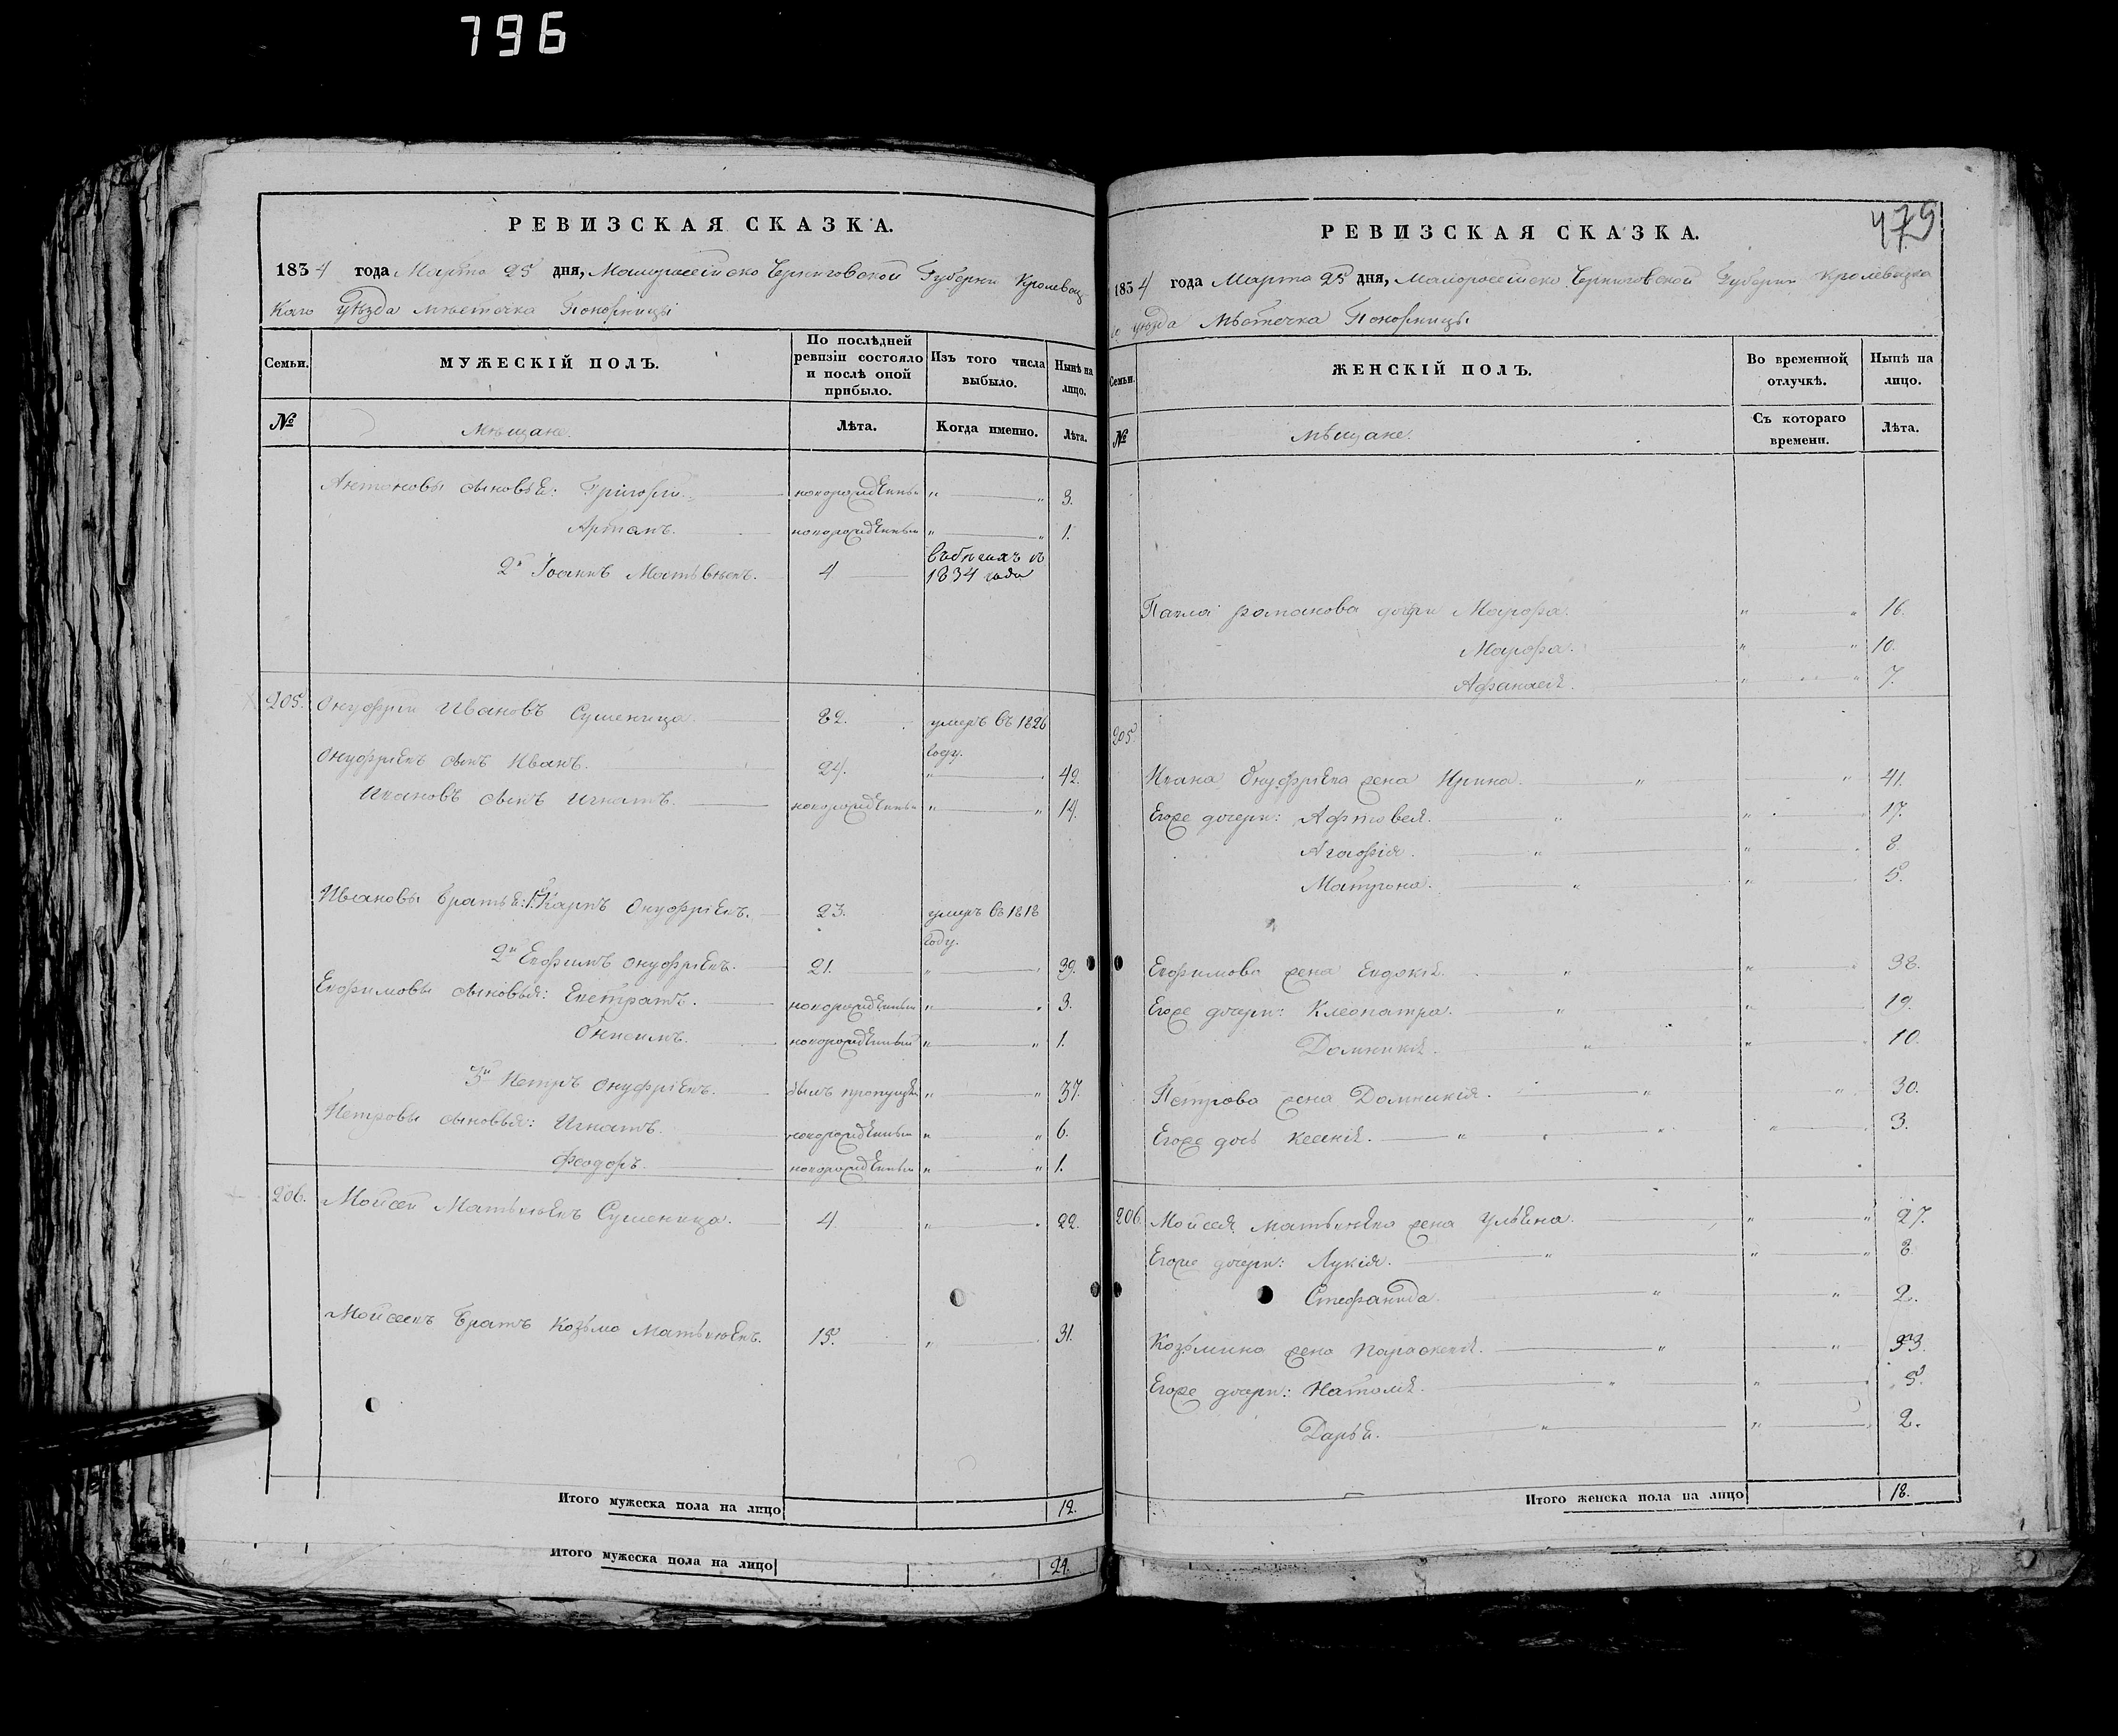 796
РЕВИЗСКАЯ СКАЗКА.
1834 года Марта 25 дня, Малоросейско Черниговской Губерни Кролевец
каго уѣзда мѣстечка Понорницы
Семьи. МУЖЕСКІЙ ПОЛЪ. По послѣдней ревизіи состояло и послѣ оной прибыло. Изъ того числа выбыло. Нынѣ на лицо.
№ Мѣщане. Лѣта. Когда именно. Лѣта.
Антоновы сыновья: Григорій новорожденный " " 3.
Артемъ. новорожденный " " 1.
2й Іоаннъ Матвѣевъ. 4 1834 года
205. Онуфрій Ивановъ Сушеница 82. умеръ въ 1826
году.
Онуфріевъ сынъ Иванъ. 24. " 42.
Ивановъ сынъ Игнатъ. новорожденный " " 14.
Ивановы братья: 1й Карпъ Онуфріевъ. 23. умеръ въ 1818
году.
2й Евфимъ Онуфріевъ. 21. " 39.
Евфимовы сыновья: Евстратъ. новорожденный " 3.
Онисимъ. новорожденный " " 1.
3й Петръ Онуфріевъ. былъ пропущен " " 37.
Петровы сыновья: Игнатъ. новорожденный " " 6.
Феодоръ. новорожденный " " 1.
206. Мойсей Матвѣевъ Сушеница. 4. " 22.
Мойсеевъ братъ Козьма Матвѣевъ. 15. " 31.
Итого мужеска пола на лицо 12.
Итого мужеска пола на лицо 24.
479
РЕВИЗСКАЯ СКАЗКА.
1834 года Марта 25 дня, Малоросейско Черниговской Губерни Кролевецка
го уѣзда Мѣстечка Понорницы
Семьи. ЖЕНСКІЙ ПОЛЪ. Во временной отлучкѣ. Нынѣ на лицо.
№ Мѣщане. Съ котораго времени. Лѣта.
Павла романова дочери Марфа. " " 16.
Марфа. " " 10.
Афанасія. " " 7
205.
Ивана Онуфріева жена Ирина. " " 41.
Егоже дочери: " " 17.
Агафія. " " 8
Матрона. " " 5.
Евфимова жена Евдокія. " " 38.
Егоже дочери: Клеопатра. " " 19.
Домникія. " " 10.
Петрова жена Домникія. " " 30.
Егоже дочь Ксенія. " " 3.
206. Мойсея Матвѣева жена Ульяна. " " 27.
Егоже дочери: Лукія. " " 3.
Стефанида. " " 2.
Козьмина жена Параскевія. " " 33.
Егоже дочери: Наталія. " " 5.
Дарья. " " 2.
Итого женска пола на лицо 18.